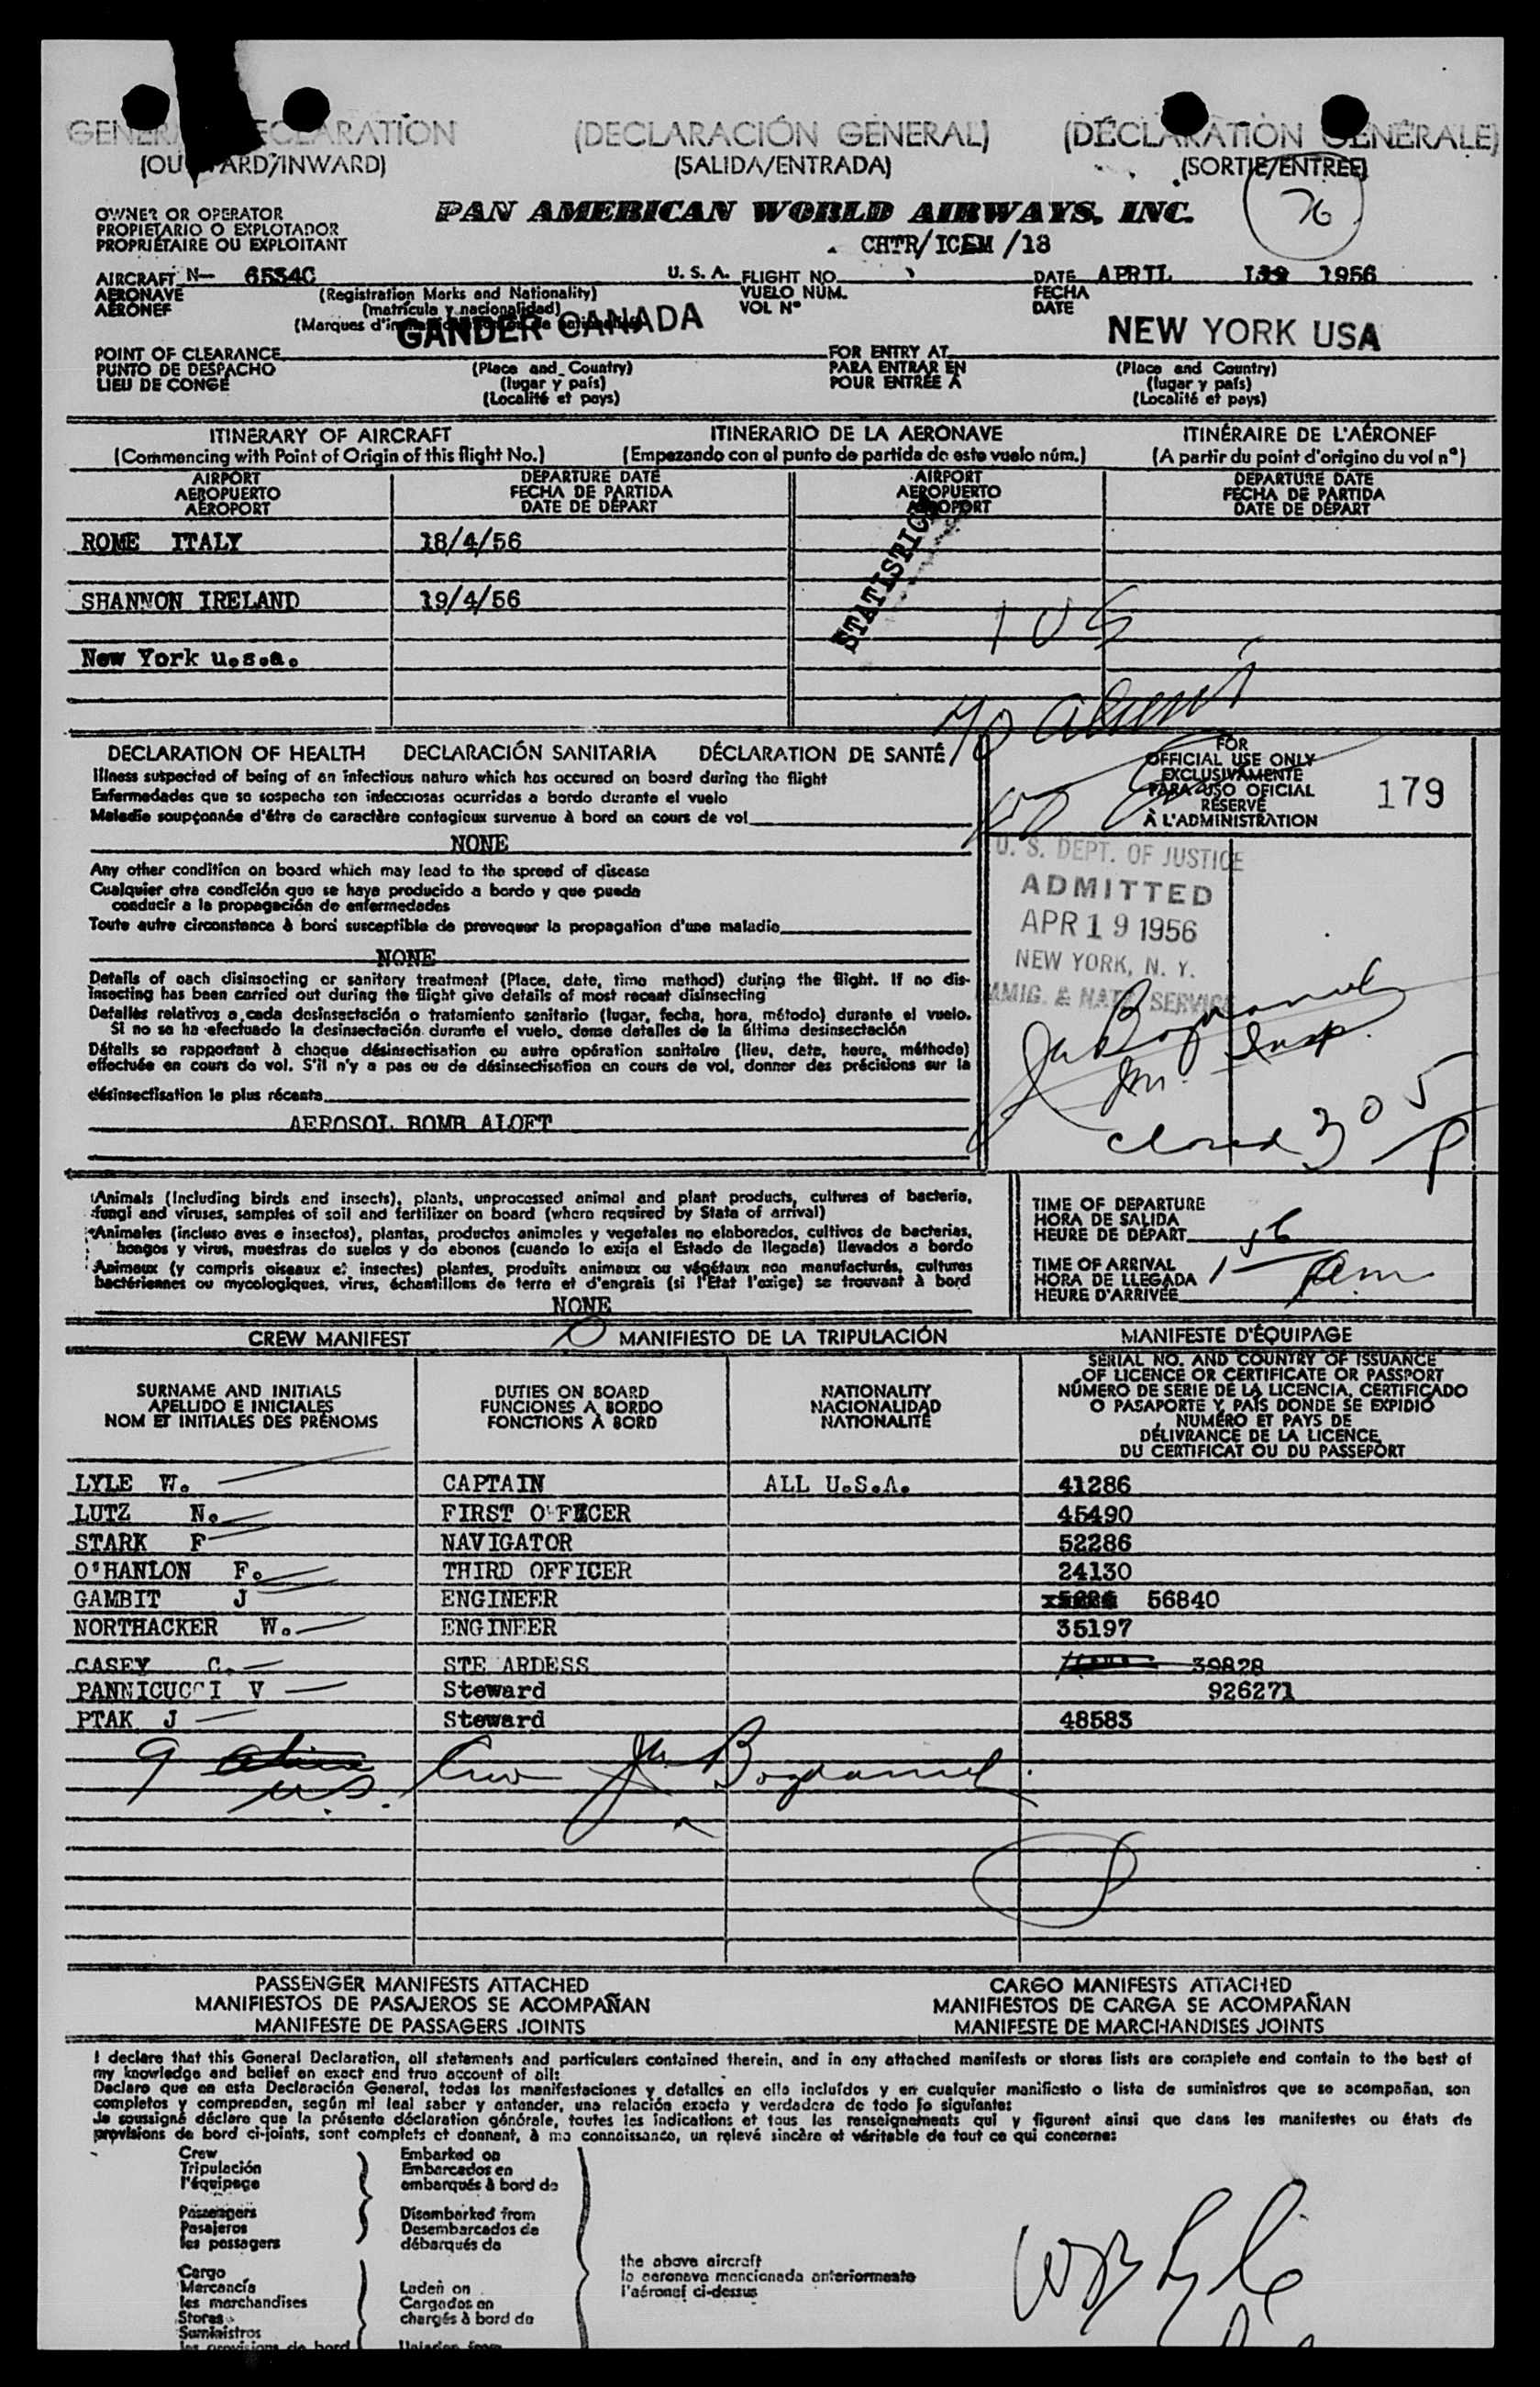 (DECLARACIÓN GENERAL)
(SALIDA/ENTRADA)
(SORTIE/ENTREE)
76
OWNER OR OPERATOR
PROPIETARIO O EXPLOTADOR
PROPRIÉTAIRE OU EXPLOITANT
PAN AMERICAN WORLD AIRWAYS, INC.
CHTR/ICEM /18
AIRCRAFT N- 6534C U. S. A. FLIGHT NO. DATE APRIL 1956
AERONAVE (Registration Marks and Nationality) VUELO NÚM. FECHA
AÉRONEF (matrícula y nacionalidad) VOL Nº DATE
(Marques
GANDER CANADA
NEW YORK USA
POINT OF CLEARANCE FOR ENTRY AT
PUNTO DE DESPACHO (Place and Country) PARA ENTRAR EN (Place and Country)
LIEU DE CONGÉ (lugar y país) POUR ENTRÉE A (lugar y país)
(Localité et pays) (Localité et pays)
ITINERARY OF AIRCRAFT ITINERARIO DE LA AERONAVE ITINÉRAIRE DE L'AÉRONEF
(Commencing with Point of Origin of this flight No.) (Empezando con el punto de partida de este vuelo núm.) (A partir du point d'origine du vol nº)
AIRPORT DEPARTURE DATE AIRPORT DEPARTURE DATE
AEROPUERTO FECHA DE PARTIDA AEROPUERTO FECHA DE PARTIDA
AÉROPORT DATE DE DÉPART AÉROPORT DATE DE DÉPART
ROME ITALY 18/4/56
STATISTICS
SHANNON IRELAND 19/4/56
New York u.s.a.
DECLARATION OF HEALTH DECLARACIÓN SANITARIA DÉCLARATION DE SANTÉ
Illness suspected of being of an infectious nature which has occured on board during the flight
Enfermedades que se sospecha son infecciosas ocurridas a bordo durante el vuelo
Maladie soupçonnée d'être de caractère contagieux survenue à bord en cours de vol
NONE
FOR
OFFICIAL USE ONLY
EXCLUSIVAMENTE
PARA USO OFICIAL
RÉSERVÉ
À L'ADMINISTRATION
179
Any other condition on board which may lead to the spread of disease
Cualquier otra condición que se haya producido a bordo y que pueda
conducir a la propagación de enfermedades
Toute autre circonstance à bord susceptible de provoquer la propagation d'une maladie
NONE
U. S. DEPT. OF JUSTICE
ADMITTED
APR 19 1956
NEW YORK, N. Y.
IMMIG. & NATZ SERVICE
Details of each disinsecting or sanitary treatment (Place, date, time method) during the flight. If no dis-
insecting has been carried out during the flight give details of most recent disinsecting
Detalles relativos a cada desinsectación o tratamiento sanitario (lugar, fecha, hora, método) durante el vuelo.
Si no se ha efectuado la desinsectación durante el vuelo, dense detalles de la última desinsectación
Détails se rapportant à chaque désinsectisation ou autre opération sanitaire (lieu, date, heure, méthode)
effectuée en cours de vol. S'il n'y a pas eu de désinsectisation en cours de vol, donner des précisions sur la
désinsectisation la plus récente
AEROSOL BOMB ALOFT
closed 305 P
Animals (Including birds and insects), plants, unprocessed animal and plant products, cultures of bacteria,
fungi and viruses, samples of soil and fertilizer on board (where required by State of arrival)
Animales (incluso aves e insectos), plantas, productos animales y vegetales no elaborados, cultivos de bacterias,
hongos y virus, muestras de suelos y de abonos (cuando lo exija el Estado de llegada) llevados a bordo
Animaux (y compris oiseaux et insectes) plantes, produits animaux ou végétaux non manufacturés, cultures
bactériennes ou mycologiques, virus, échantillons de terre et d'engrais (si l'Etat l'exige) se trouvant à bord
NONE
TIME OF DEPARTURE
HORA DE SALIDA
HEURE DE DÉPART
TIME OF ARRIVAL
HORA DE LLEGADA
HEURE D'ARRIVÉE
CREW MANIFEST MANIFIESTO DE LA TRIPULACIÓN MANIFESTE D'ÉQUIPAGE
SURNAME AND INITIALS
APELLIDO E INICIALES
NOM ET INITIALES DES PRÉNOMS
DUTIES ON BOARD
FUNCIONES A BORDO
FONCTIONS À BORD
NATIONALITY
NACIONALIDAD
NATIONALITÉ
SERIAL NO. AND COUNTRY OF ISSUANCE
OF LICENCE OR CERTIFICATE OR PASSPORT
NÚMERO DE SERIE DE LA LICENCIA, CERTIFICADO
O PASAPORTE Y PAÍS DONDE SE EXPIDIÓ
NUMÉRO ET PAYS DE
DÉLIVRANCE DE LA LICENCE,
DU CERTIFICAT OU DU PASSEPORT
LYLE W. CAPTAIN ALL U.S.A. 41286
LUTZ N. FIRST OFFICER 45490
STARK F NAVIGATOR 52286
O'HANLON F. THIRD OFFICER 24130
GAMBIT J ENGINEER 56840
NORTHACKER W. ENGINEER 35197
CASEY C. STE ARDESS 39828
PANNICUCCI V Steward 926271
PTAK J Steward 48583
9
u.s. Crew
PASSENGER MANIFESTS ATTACHED CARGO MANIFESTS ATTACHED
MANIFIESTOS DE PASAJEROS SE ACOMPAÑAN MANIFIESTOS DE CARGA SE ACOMPAÑAN
MANIFESTE DE PASSAGERS JOINTS MANIFESTE DE MARCHANDISES JOINTS
I declare that this General Declaration, all statements and particulars contained therein, and in any attached manifests or stores lists are complete and contain to the best of
my knowledge and belief an exact and true account of all:
Declaro que en esta Declaración General, todas las manifestaciones y detalles en ella incluídos y en cualquier manifiesto o lista de suministros que se acompañan, son
completos y comprenden, según mi leal saber y entender, una relación exacta y verdadera de todo lo siguiente:
Je soussigné déclare que la présente déclaration générale, toutes les indications et tous les renseignements qui y figurent ainsi que dans les manifestes ou états de
provisions de bord ci-joints, sont complets et donnent, à ma connaissance, un relevé sincère et véritable de tout ce qui concerne:
Crew Embarked on
Tripulación Embarcados en
l'équipage embarqués à bord de
Passengers Disembarked from
Pasajeros Desembarcados de
les passagers débarqués de
the above aircraft
la aeronave mencionada anteriormente
l'aéronef ci-dessus
Cargo
Mercancía Laden on
les marchandises Cargados en
Stores chargés à bord de
Suministros
les provisions de bord Unladen from